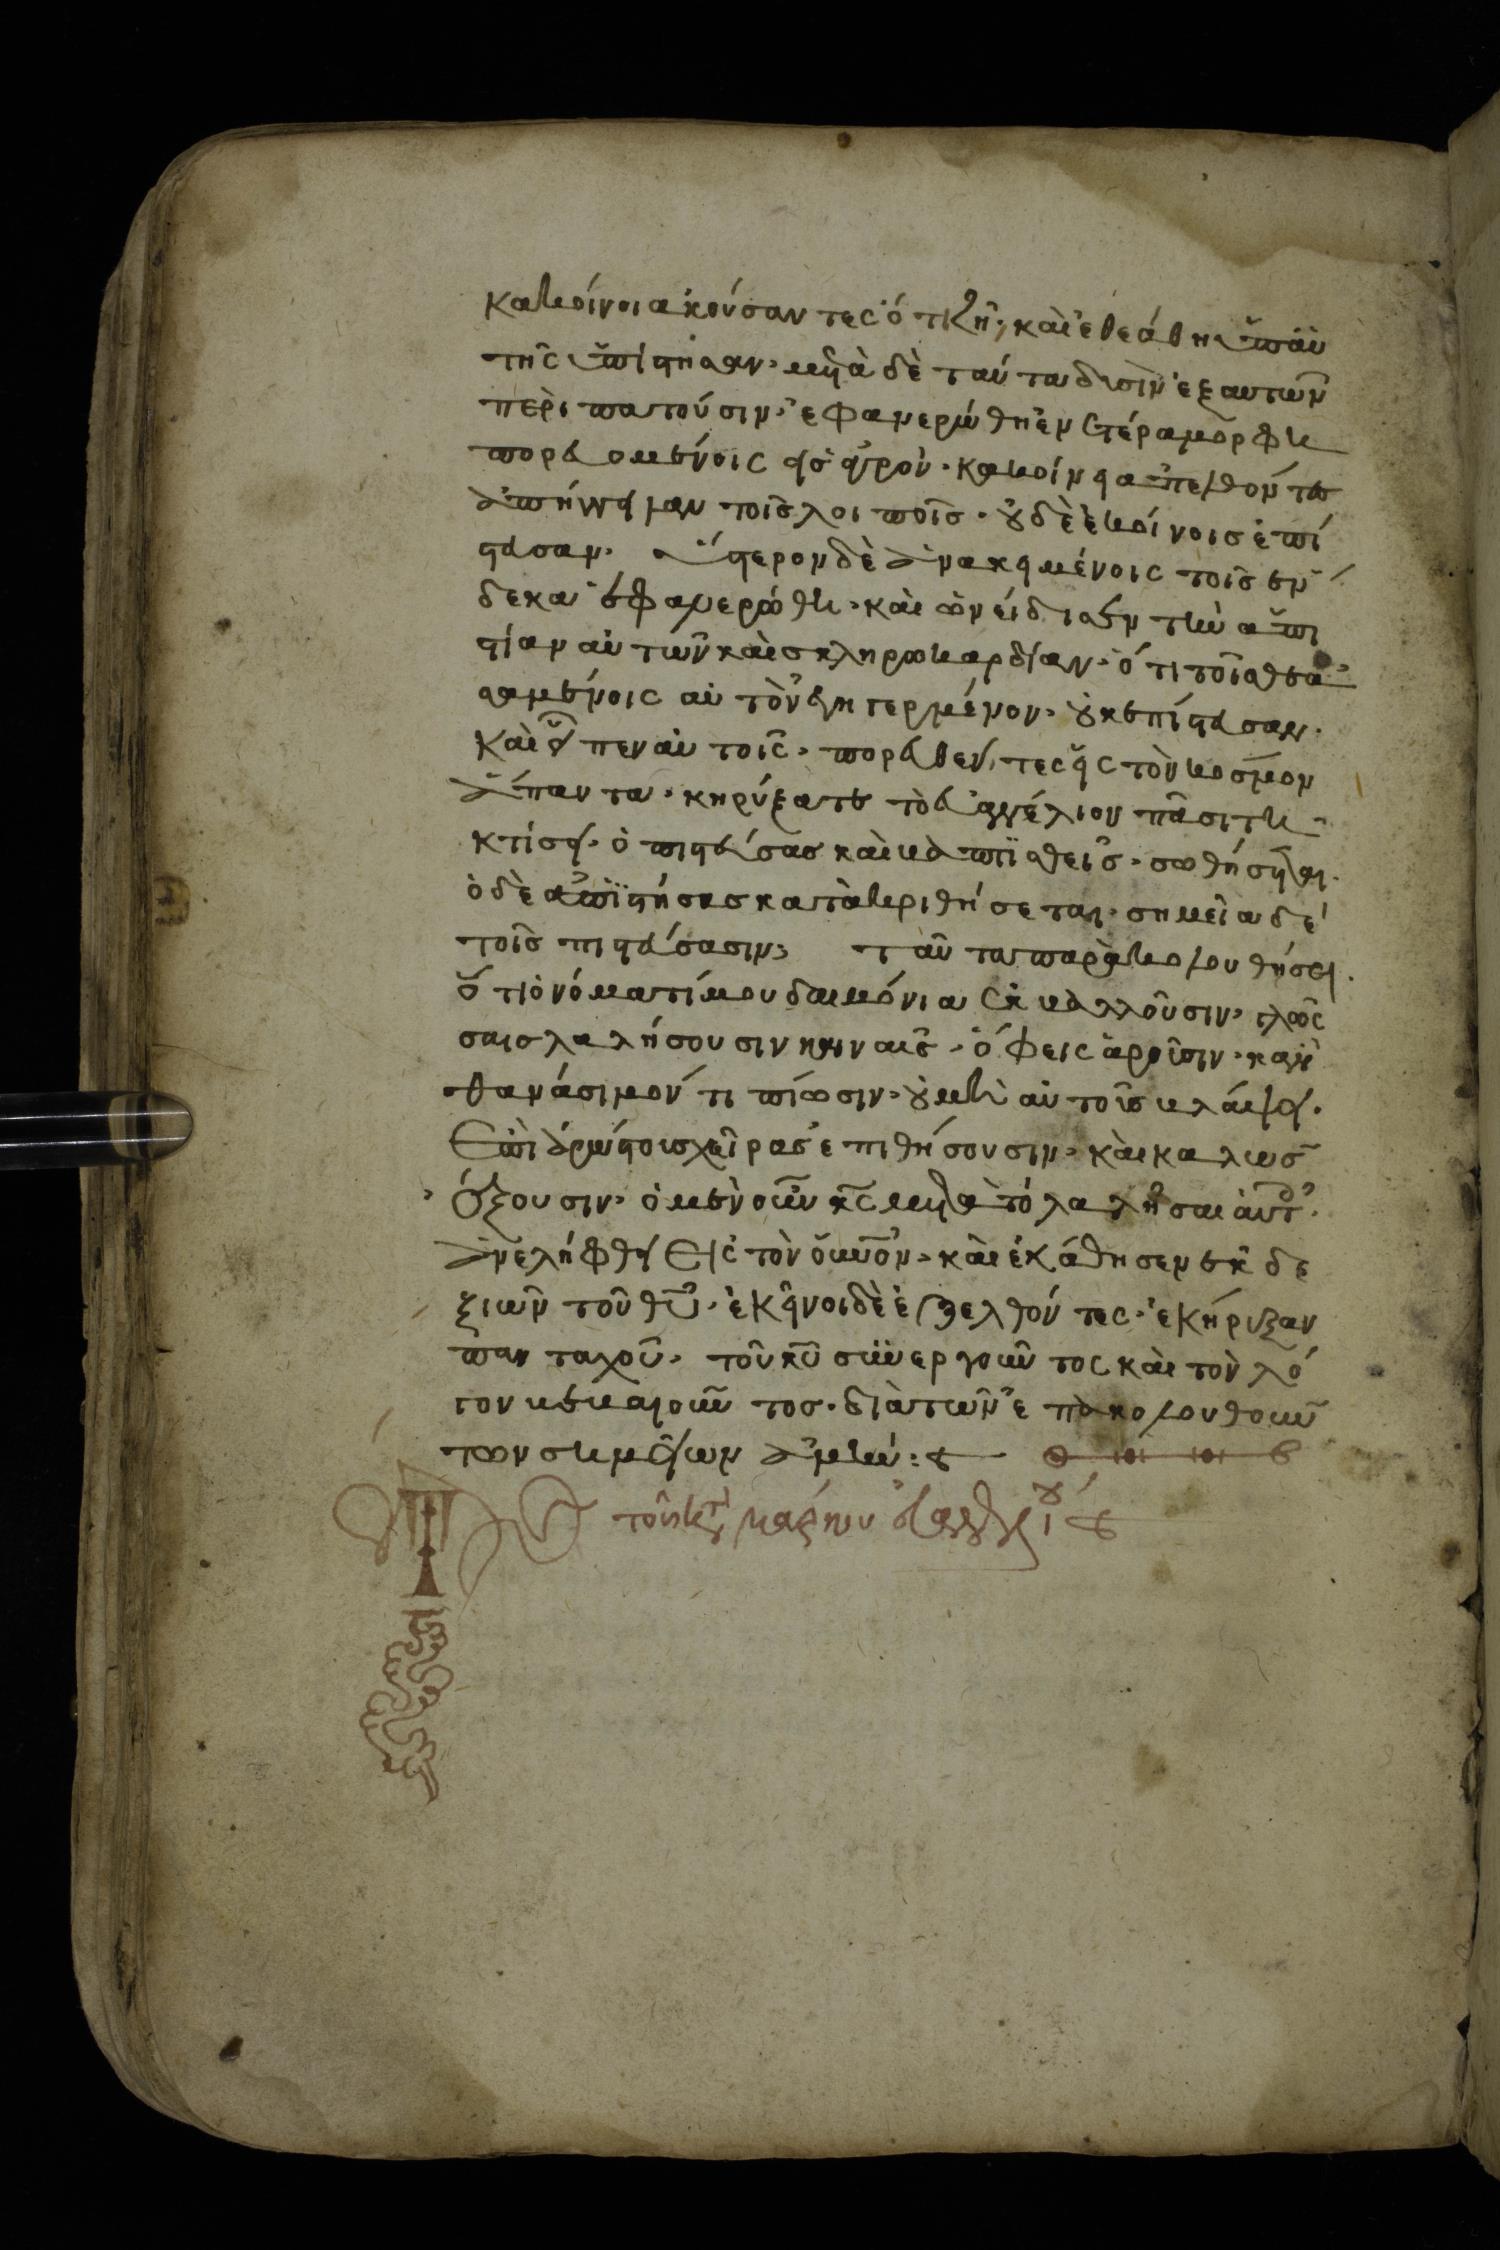 κακείνοι ακούσαντες ὅτι ζῆ, καὶ ἐθεάθη ὑπ αὐ
τῆς ἠπίστησαν· μετὰ δὲ ταύτα δυσὶν ἐξ αυτῶν
περιπατούσιν· ἐφανερώθη ἐν ετέρα μορφῆ
πορευομένοις εἰς ἀγρόν· κακείνοι απελθόντες
ἀπήγγειλαν τοῖς λοιποῖς· οὐδὲ ἐκείνοις ἐπί
στευσαν· ὕστερον δὲ ἀνακειμένοις τοῖς ἕν
δεκα ἐφανερώθη· καὶ ὠνείδισεν τὴν απι
στίαν αὐτῶν καὶ σκληροκαρδίαν· ὅτι τοῖς θεα
σαμένοις αὐτὸν ἐγηγερμένον· οὐκ ἐπίστευσαν·
Καὶ εἶπεν αὐτοῖς· πορευθέντες εἰς τὸν κοσμον
ἅπαντα· κηρύξατε τὸ εὐαγγέλιον πᾶσι τῆ
κτίσει· ὁ πιστεύσας καὶ βαπτισθεὶς· σωθήσεται·
ὁ δὲ απιστήσας κατακριθήσεται· σημεῖα δὲ
τοῖς πιστεύσασιν, ταῦτα παρακολουθήσει·
ἐν τῶ ὀνόματί μου δαιμόνια ἐκβαλλοῦσιν· γλώσ
σαις λαλήσουσιν καιναῖς· ὄφεις ἀροῦσιν· κἂν
θανάσιμόν τι πίωσιν· οὐ μὴ αὐτοῖς βλάψει·
Ἐπὶ ἀρρώστοις χεῖρας ἐπιθήσουσιν· καὶ καλῶς
ἕξουσιν· ὁ μὲν οὖν κς μετὰ τὸ λαλῆσαι αὐτοῖς·
ἀνελήφθη Εἰς τὸν οὐνον· καὶ ἐκάθησεν ἐκ δε
ξιῶν τοῦ θυ· ἐκεῖνοι δὲ ἐξελθόντες· ἐκήρυξαν
πανταχοῦ· τοῦ κυ συνεργοῦντος καὶ τὸν λό
γον βεβαιοῦντος· διὰ τῶν ἐπακολουθούν
των σημείων ἀμήν:
τοῦ κατὰ μάρκου εὐαγγελίου